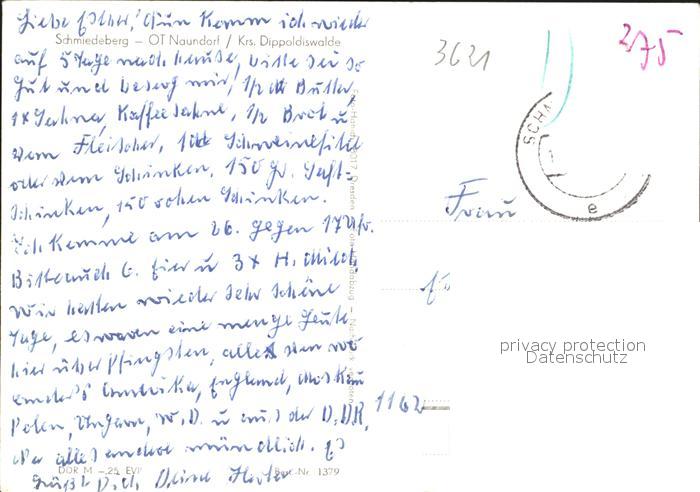 Liebe Esther! Nun komm ich wieder
Schmiedeberg — OT Naundorf / Krs. Dippoldiswalde
auf 5 Tage nach hause, bitte sei so
gut und besorg mir, 1/2 tt Butter,
1x Sahne, Kaffeesahne, 1/2 Brot u
vom Fleischer, 1 tt Schweinefilet
oder vom Schinken, 150 gr. Saft-
schinken, 150 rohen Schinken.
Ich komme am 26. gegen 17 Uhr.
Bitte auch 6. Eier u 3x H. Milch
Wir hatten wieder sehr schöne
Tage, es waren eine menge Leute
hier über Pfingsten, alles von wo
anders England, Moskau
Polen, Ungarn, W. D. u aus der D.DR.
alles andere mündlich. Es
DDR M –,25 EVP
Best.-Nr. 1379
Grüßt Dich Deine
3621
275
SCHM
e
Frau
1162
privacy protection
Datenschutz